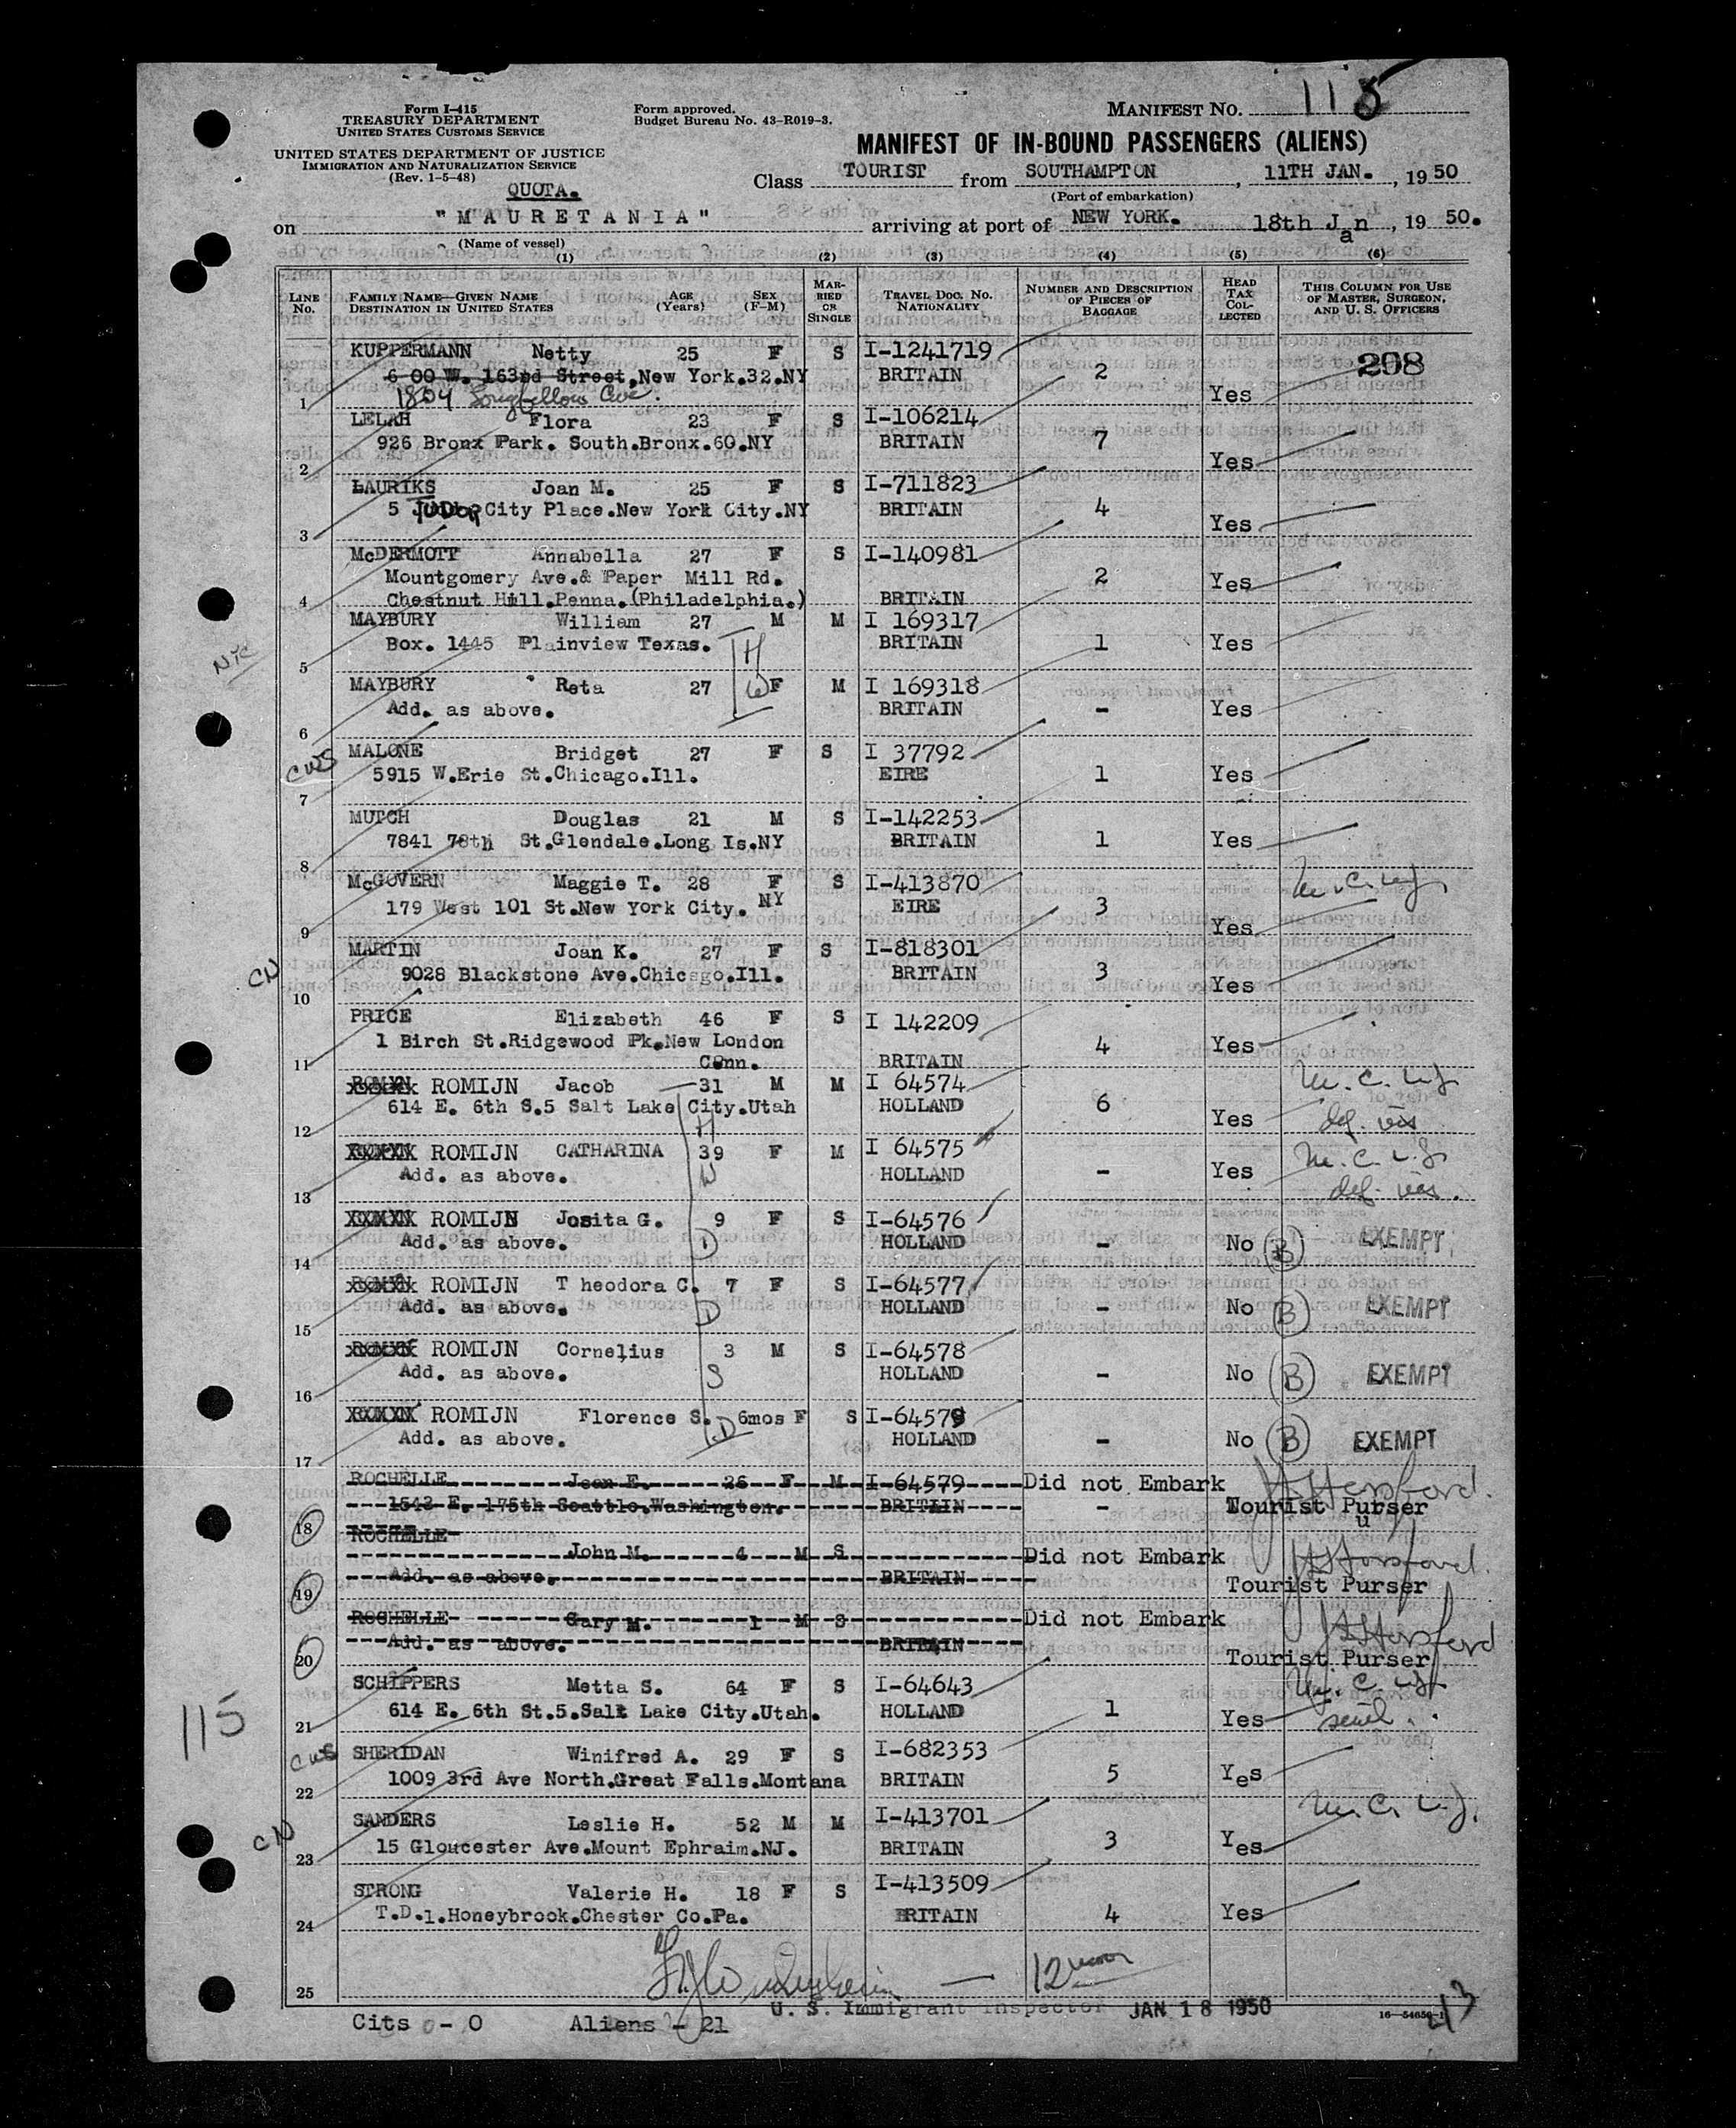 Form I-415
TREASURY DEPARTMENT
UNITED STATES CUSTOMS SERVICE
UNITED STATES DEPARTMENT OF JUSTICE
IMMIGRATION AND NATURALIZATION SERVICE
(Rev. 1-5-48)
Form approved.
Budget Bureau No. 43-R019-3.
MANIFEST NO. 115
MANIFEST OF IN-BOUND PASSENGERS (ALIENS)
QUOTA.
Class TOURIST from SOUTHAMPTON, 11TH JAN., 19 50
(Port of embarkation)
on "MAURETANIA" arriving at port of NEW YORK. 18th Jan, 19 50.
(Name of vessel)
(1) (2) (3) (4) (5) (6)
LINE No. FAMILY NAME—GIVEN NAME DESTINATION IN UNITED STATES AGE (Years) SEX (F-M) MARRIED OR SINGLE TRAVEL DOC. NO. NATIONALITY NUMBER AND DESCRIPTION OF PIECES OF BAGGAGE HEAD TAX COLLECTED THIS COLUMN FOR USE OF MASTER, SURGEON, AND U. S. OFFICERS
KUPPERMANN Netty 25 F S I-1241719 298
6 00 W. 163rd Street,New York.32.NY BRITAIN 2 Yes
1 1804 Longfellow Ave.
LELAH Flora 23 F S I-106214
926 Bronx Park. South.Bronx.60.NY BRITAIN 7
2 Yes
LAURIKS Joan M. 25 F S I-711823
5 TUDOR City Place.New York City.NY BRITAIN 4
3 Yes
McDERMOTT Annabella 27 F S I-140981
Mountgomery Ave.& Paper Mill Rd. 2 Yes
4 Chestnut Hill.Penna.(Philadelphia.) BRITAIN
MAYBURY William 27 M M I 169317
Box. 1445 Plainview Texas. H BRITAIN 1 Yes
NYC 5
MAYBURY Reta 27 W F M I 169318
Add. as above. BRITAIN - Yes
6
CWS MALONE Bridget 27 F S I 37792
5915 W.Erie St.Chicago.Ill. EIRE 1 Yes
7
MUTCH Douglas 21 M S I-142253
7841 78th St.Glendale.Long Is.NY BRITAIN 1 Yes
8
McGOVERN Maggie T. 28 F S I-413870
179 West 101 St.New York City. NY EIRE 3
9 Yes
MARTIN Joan K. 27 F S I-818301
CN 9028 Blackstone Ave.Chicago.Ill. BRITAIN 3 Yes
10
PRICE Elizabeth 46 F S I 142209
1 Birch St.Ridgewood Pk.New London 4 Yes
11 Conn. BRITAIN
ROMIJN Jacob 31 M M I 64574
614 E. 6th S.5 Salt Lake City.Utah HOLLAND 6 Yes
12 H def. vis
ROMIJN CATHARINA 39 F M I 64575
Add. as above. W HOLLAND - Yes
13 def. vis.
ROMIJN Josita G. 9 F S I-64576
Add. as above. D HOLLAND - No B EXEMPT
14
ROMIJN Theodora C. 7 F S I-64577
Add. as above. D HOLLAND - No B EXEMPT
15
ROMIJN Cornelius 3 M S I-64578
Add. as above. S HOLLAND - No B EXEMPT
16
ROMIJN Florence S. 6mos F S I-64579
Add. as above. D HOLLAND - No B EXEMPT
17
ROCHELLE Jean E. 26 F M I-64579 Did not Embark
1642 E. 175th Seattle.Washington. BRITAIN - Tourist Purser
18
ROCHELLE
John M. 4 M S Did not Embark
19 Add. as above. BRITAIN Tourist Purser
ROCHELLE Gary M. 1 M S Did not Embark
Add. as above. BRITAIN
20 Tourist Purser
SCHIPPERS Metta S. 64 F S I-64643
115 614 E. 6th St.5.Salt Lake City.Utah. HOLLAND 1 Yes
21
CWS SHERIDAN Winifred A. 29 F S I-682353
1009 3rd Ave North.Great Falls.Montana BRITAIN 5 Yes
22
SANDERS Leslie H. 52 M M I-413701
CN 15 Gloucester Ave.Mount Ephraim.NJ. BRITAIN 3 Yes
23
STRONG Valerie H. 18 F S I-413509
T.D.1.Honeybrook.Chester Co.Pa. BRITAIN 4 Yes
24
12
25
U. S. Immigrant Inspector JAN 18 1950
Cits - 0 Aliens - 21